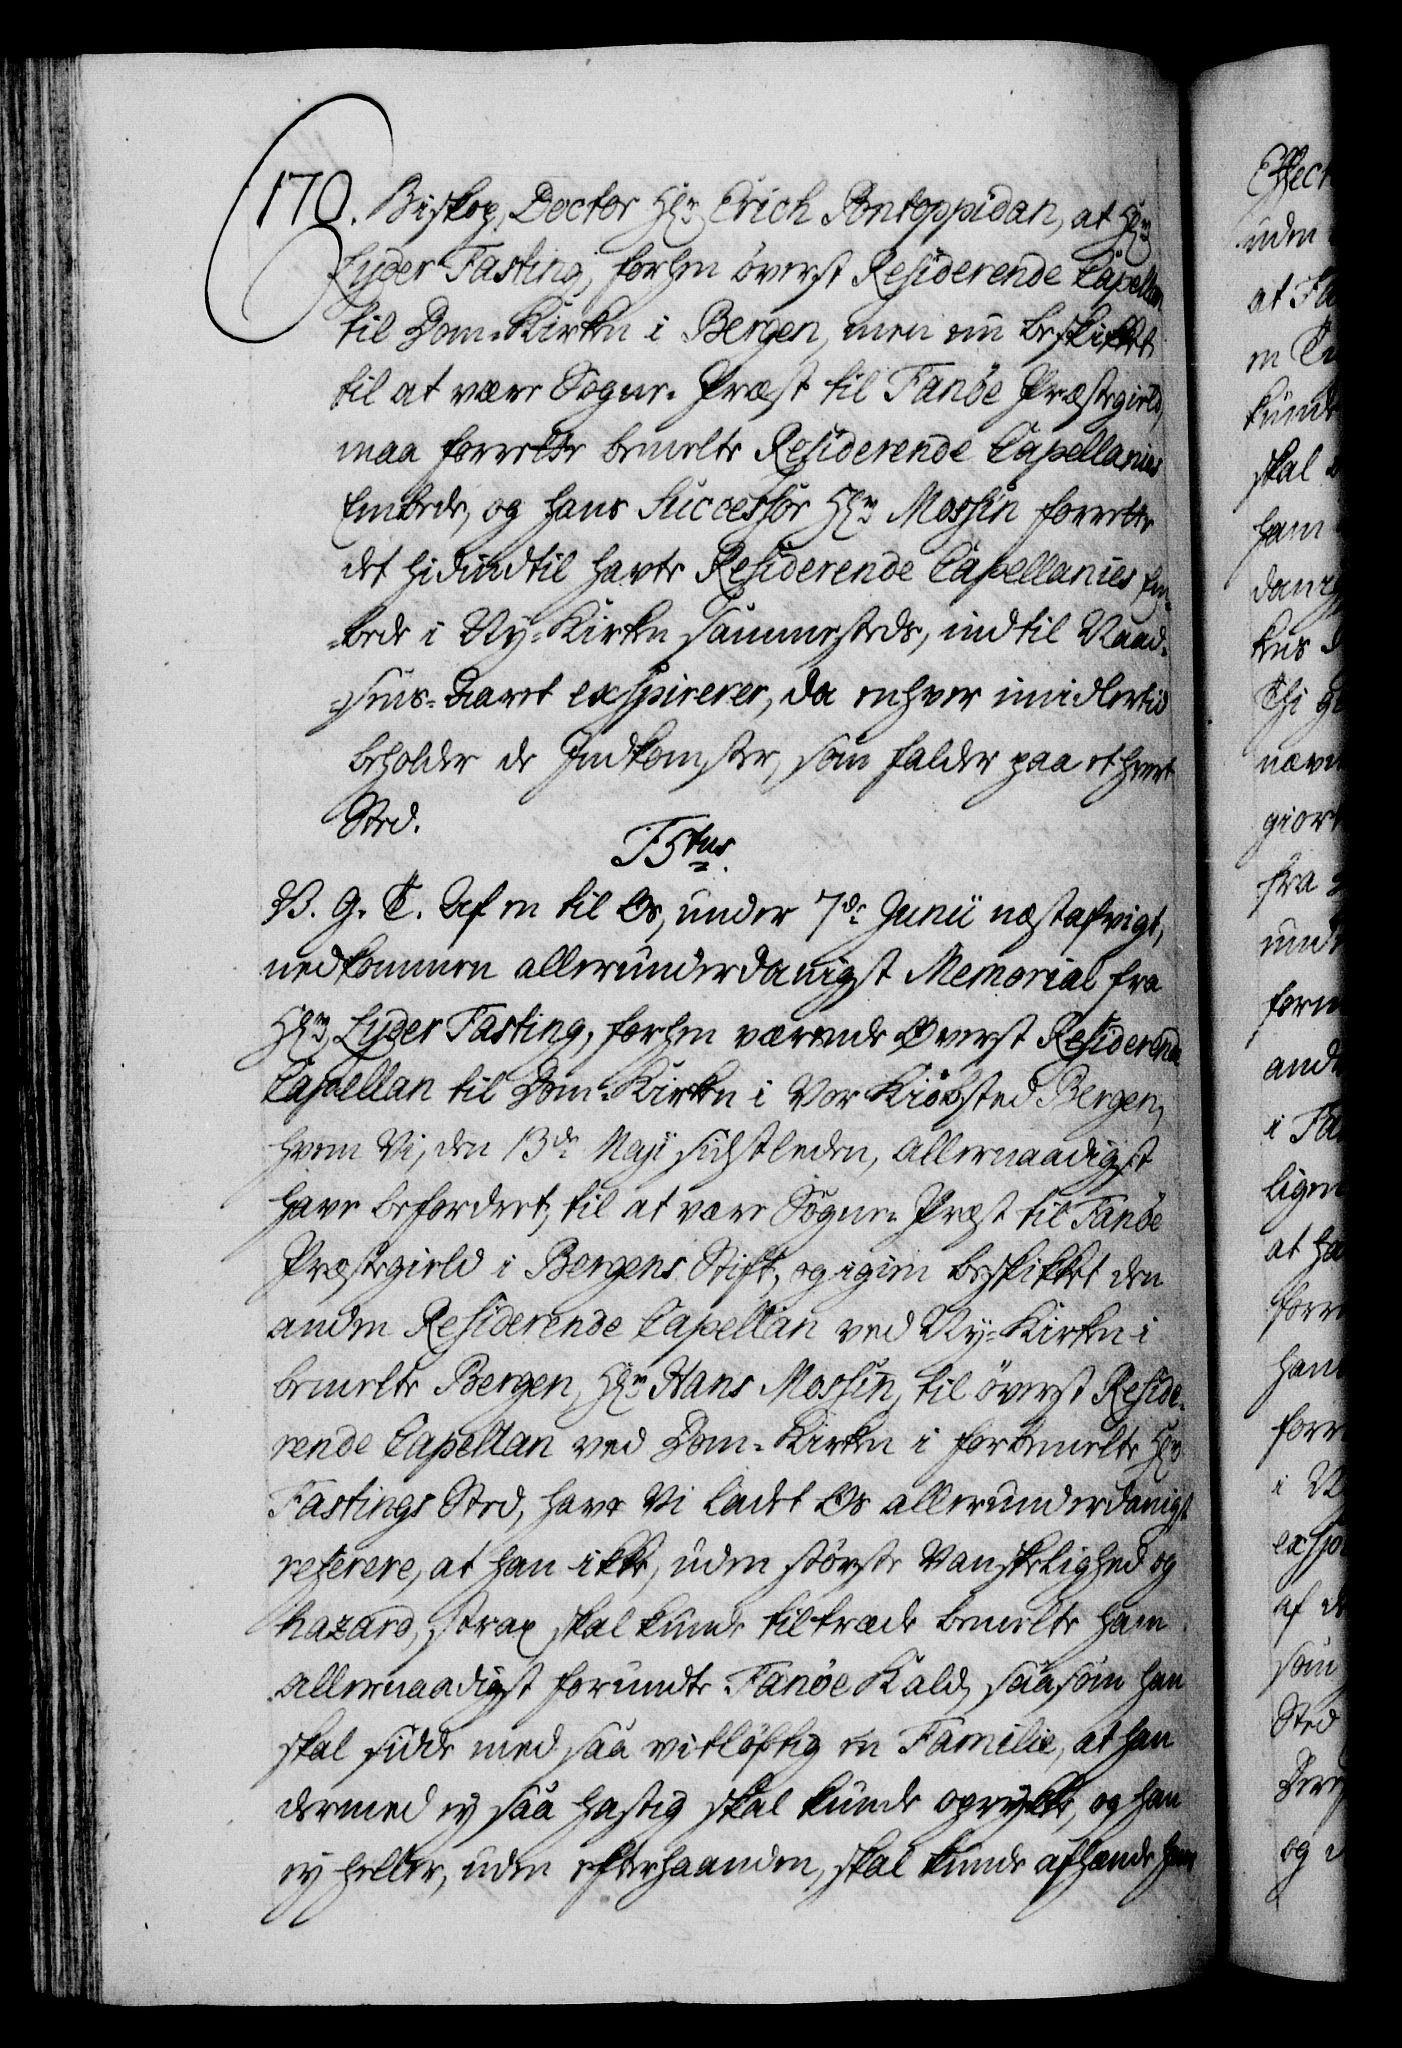 170. Biskop, Doctor Hr. Erich Pontoppidan, at Hr.
Lyder Fasting, forhen överst Residerende Capellan
til Dom-Kirken i Bergen, men nu beskikket
til at være Sogne-Præst til Fanöe Præstegield,
maa forrette bemelte Residerende Capellanies
Embede, og hans Successor Hr. Mossin forrette
det hidindtil havte Residerende Capellanies Em-
bede i Ny-Kirken sammesteds, indtil Naad-
sens-Aaret exspirerer, da enhver imidlertid
beholder de Indkomster, som falder paa ethvert
Sted.
F5tus.
V. G. T. Af en til Os, under 7de Junii næstafvigt,
nedkommen allerunderdanigst Memorial fra
Hr. Lyder Fasting, forhen værende Överst Residerende
Capellan til Dom-Kirken i Vor Kiöbsted Bergen,
hvem Vi, den 13de Maji sidstleden, Allernaadigst
have befordret, til at være Sogne-Præst til Fanöe
Præstegield i Bergens Stift, og igien beskikket den
anden Residerende Capellan ved Ny-Kirken i
bemelte Bergen, Hr. Hans Mossin, til överst Reside-
rende Capellan ved Dom-Kirken i forbemelte Hr.
Fastings Sted, have Vi ladet Os allerunderdanigst
referere, at han ikke, uden störste Vanskelighed og
hazard, strax skal kunde tiltræde bemelte ham
Allernaadigst forundte Fanöe Kald, saasom han
skal sidde med saa vitlöftig en Familie, at han
dermed ey saa hastig skal kunde oprykke, og han
ey heller, uden efterhaanden, skal kunde afhænde sine